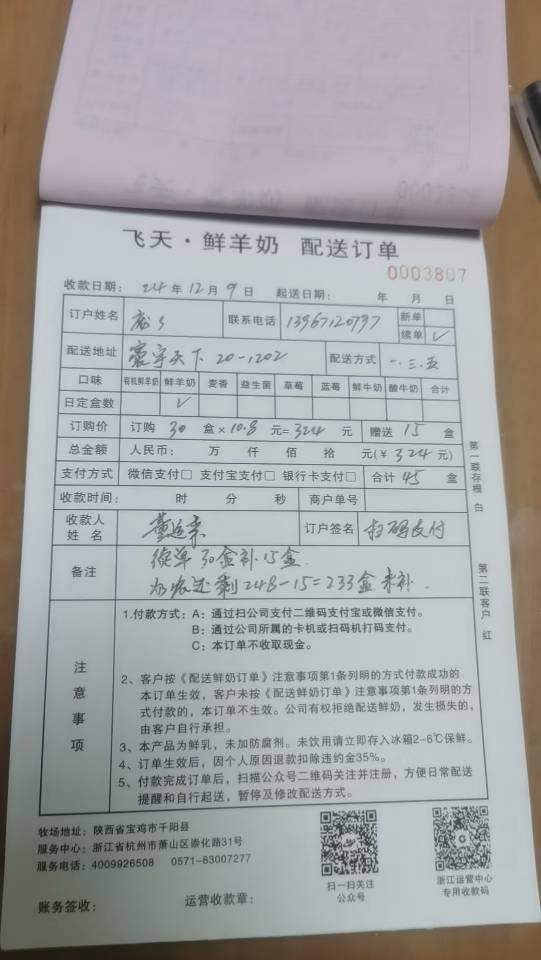 飞天·鲜羊奶 配送订单
0003807
收款日期： 24年12月9日 起送日期： 年 月 日
订户姓名 联系电话 13967120797 新单
续单 ✓
配送地址 寰宇天下 20-1202 配送方式 一.三.五
口味 有机鲜羊奶 鲜羊奶 麦香 益生菌 草莓 蓝莓 鲜牛奶 酸牛奶 合计
日定盒数 ✓
订购价 订购 30 盒×10.8 元=324 元 赠送 15 盒
总金额 人民币： 万 仟 佰 拾 元(￥324元)
支付方式 微信支付□ 支付宝支付□ 银行卡支付□ 合计 45 盒
收款时间： 时 分 秒 商户单号
收款人
姓 名 董 订户签名 扫码支付
备注 续单30盒补15盒.
还剩248-15=233盒未补.
注意事项
1.付款方式：A：通过扫公司支付二维码支付宝或微信支付。
B：通过公司所属的卡机或扫码机打码支付。
C：本订单不收取现金。
2、客户按《配送鲜奶订单》注意事项第1条列明的方式付款成功的
本订单生效，客户未按《配送鲜奶订单》注意事项第1条列明的方
式付款的，本订单不生效。公司有权拒绝配送鲜奶，发生损失的，
由客户自行承担。
3、本产品为鲜乳，未加防腐剂。未饮用请立即存入冰箱2-6℃保鲜。
4、订单生效后，因个人原因退款扣除违约金35%。
5、付款完成订单后，扫描公众号二维码关注并注册，方便日常配送
提醒和自行起送，暂停及修改配送方式。
第一联存根 白
第二联客户 红
牧场地址：陕西省宝鸡市千阳县
服务中心：浙江省杭州市萧山区崇化路31号
服务电话：4009926508 0571-83007277
扫一扫关注
公众号
浙江运营中心
专用收款码
账务签收： 运营收款章：